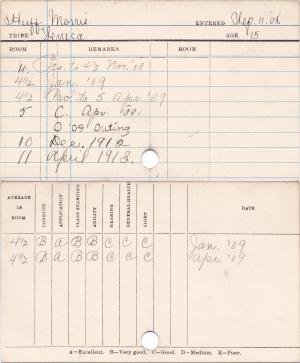 Huff, Morris ENTERED Sep. 11, '08.
TRIBE Seneca AGE 15
ROOM REMARKS ROOM
4 Pro. to 4½ Nov. '08
4½ Jan. '09
4½ Pro to 5 Apr. '09
5 C. Apr. '09.
O '09 Outing
10 Dec. 1912
11 April 1913.
AVERAGE IN ROOM CONDUCT APPLICATION CLASS STANDING ABILITY READING GENERAL HEALTH SIGHT DATE
4½ B A B B C C C Jan. '09
4½ B A B B C C C Apr. '09
A—Excellent. B—Very good. C—Good. D—Medium. E—Poor.